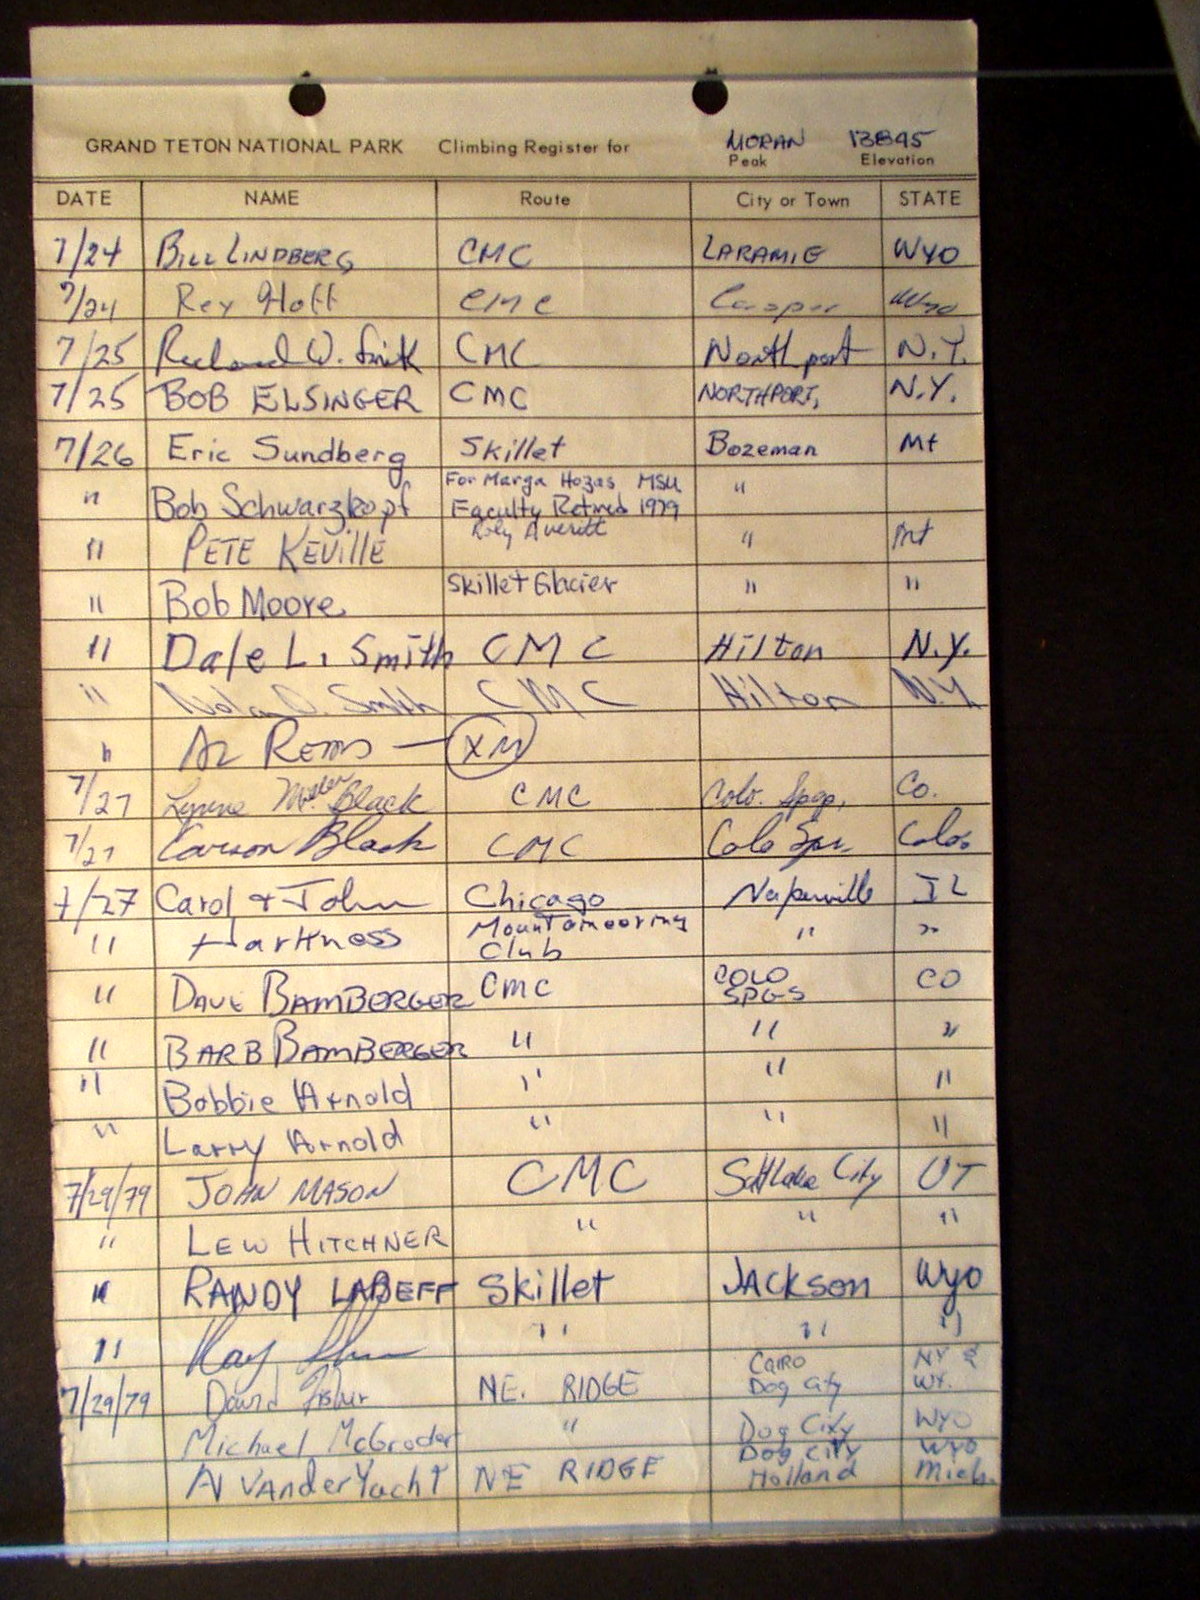 MORAN 13895
GRAND TETON NATIONAL PARK Climbing Register for Peak Elevation
DATE NAME Route City or Town STATE
7/24 BILL LINDBERG CMC LARAMIE WYO
7/24 Rex Hoff CMC Casper Wyo
7/25 Richard W. Smith CMC Northport N.Y.
7/25 BOB ELSINGER CMC NORTHPORT, N.Y.
7/26 Eric Sundberg Skillet Bozeman Mt
" Bob Schwarzkopf For Marga Hozas MSU "
Faculty Retired 1979
" PETE KEVILLE Roly Averill " Mt
" Bob Moore Skillet Glacier " "
" Dale L. Smith CMC Hilton N.Y.
" Smith CMC Hilton N.Y
" AL — XM
7/27 Lynne Black CMC Colo. Spgs. Co.
7/27 Carson Black CMC Colo Spr. Colo.
7/27 Carol & John Chicago Naperville IL
" Harkness Mountaineering " "
Club
" DAVE BAMBERGER CMC COLO CO
SPGS
" BARB BAMBERGER " " "
" Bobbie Arnold " " "
" Larry Arnold " " "
7/29/79 JOHN MASON CMC Salt Lake City UT
" LEW HITCHNER " " "
" RANDY LABEFF Skillet JACKSON Wyo
" Ray " " "
CAIRO NY &
7/29/79 David Fisher NE. RIDGE Dog City WY.
Michael McGroder " Dog City WYO
Dog City WYO
Al VanderYacht NE RIDGE Holland Mich.